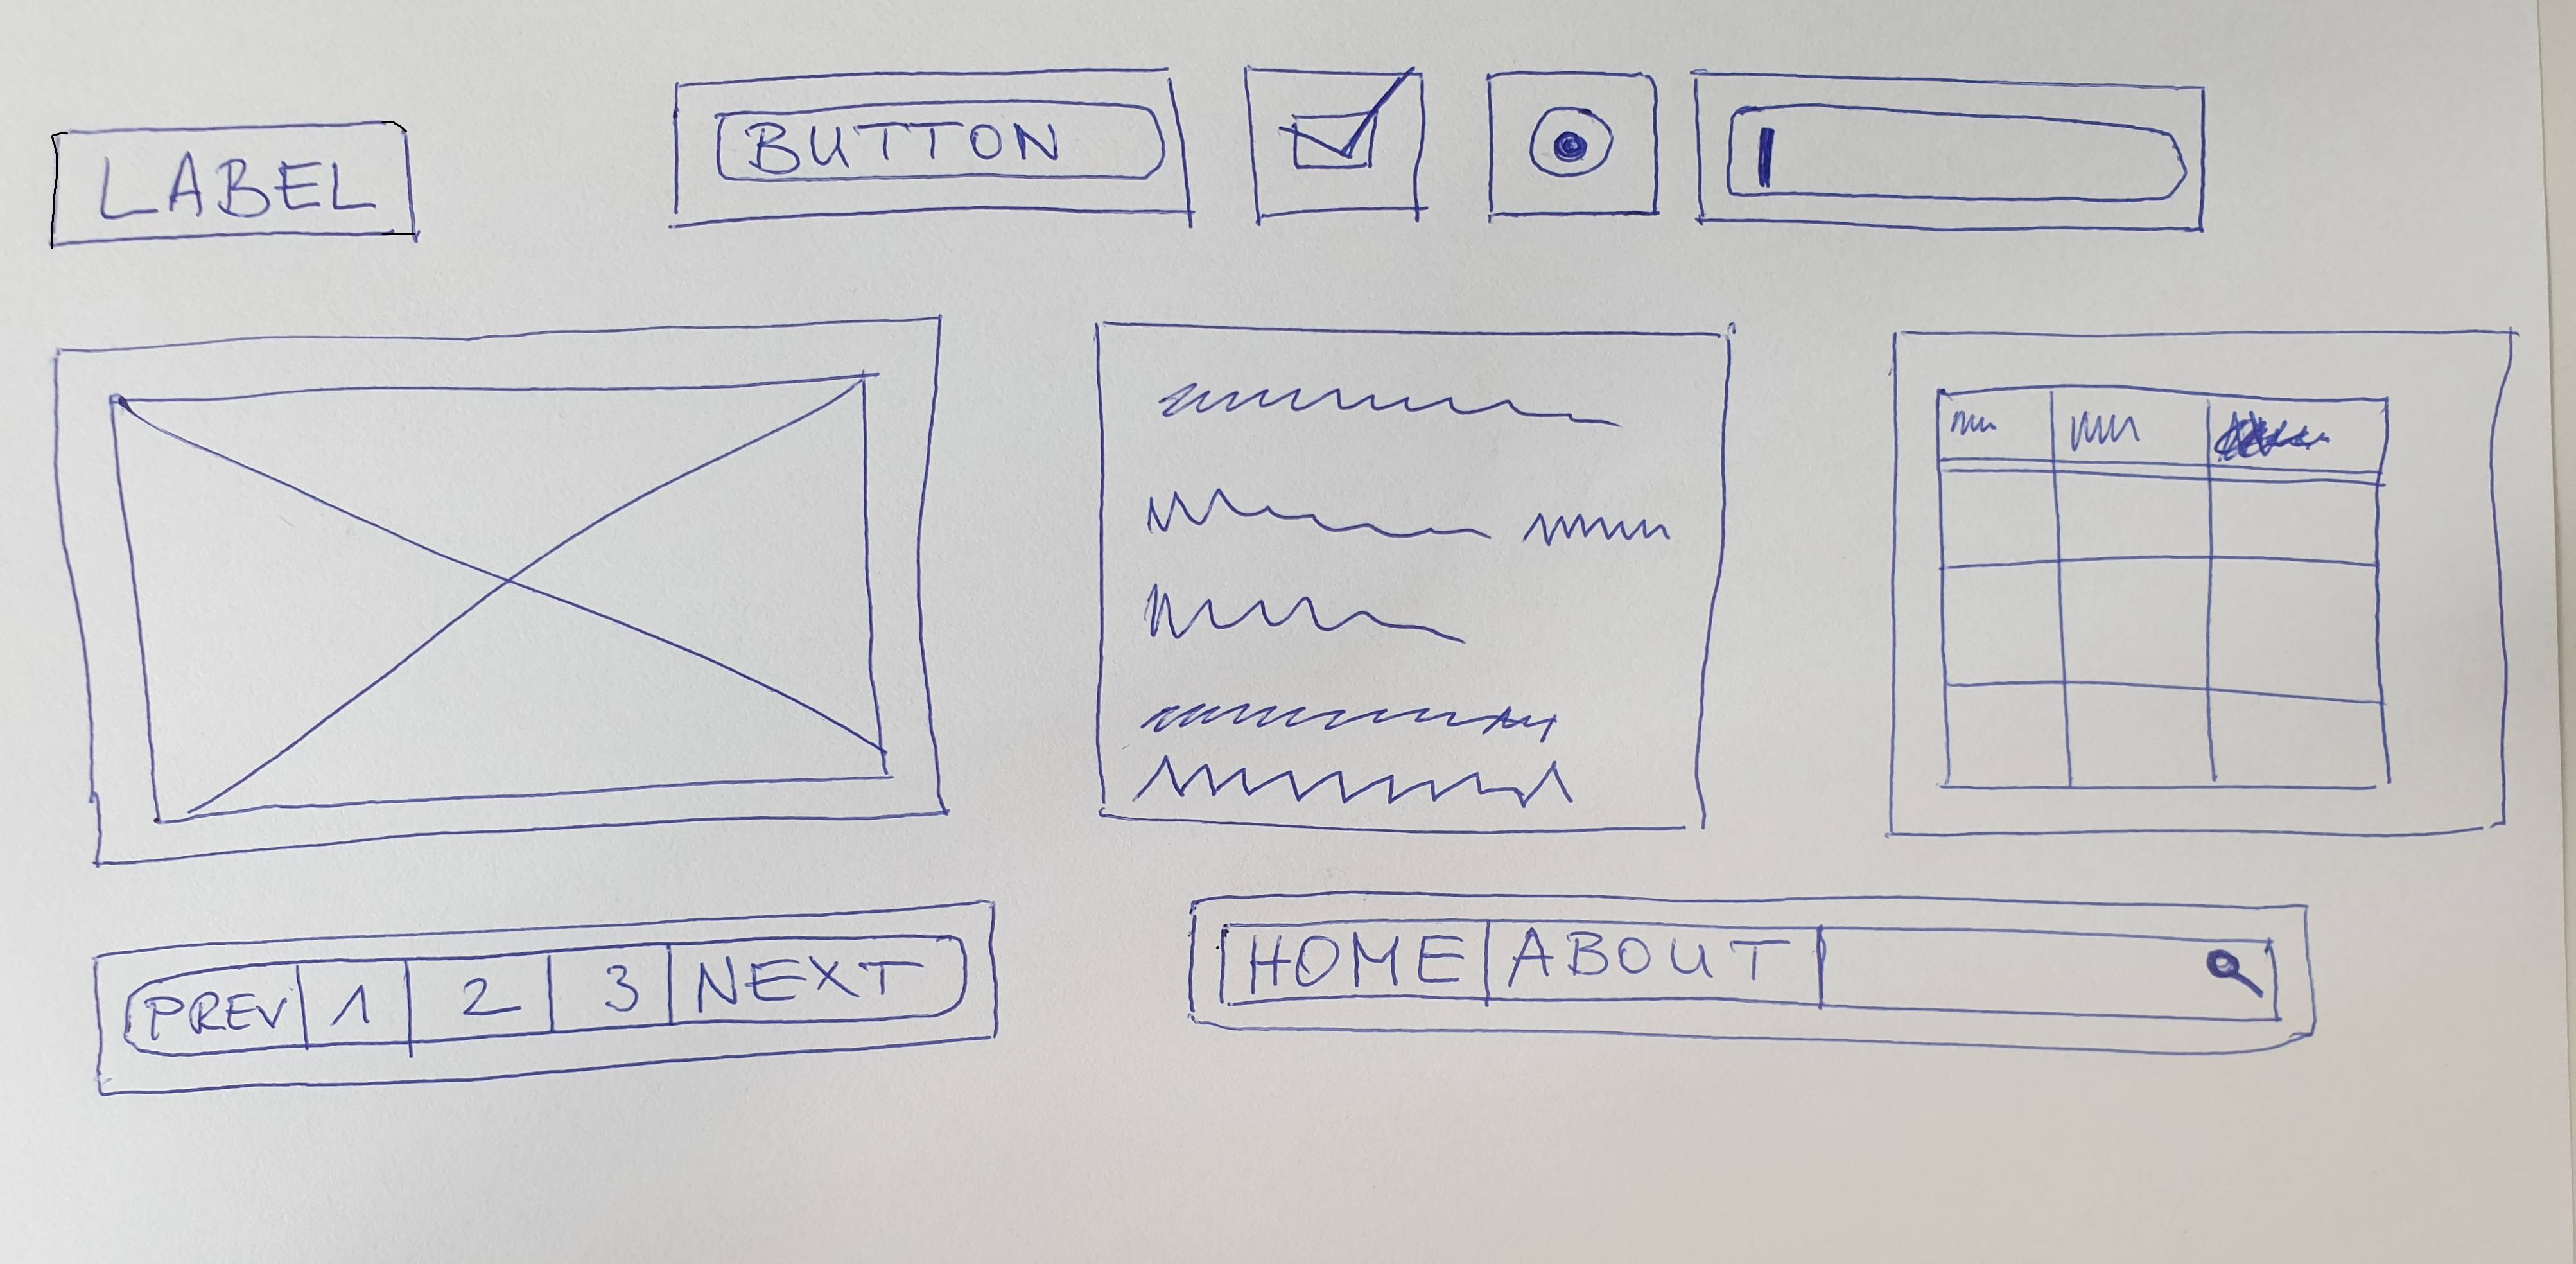 LABEL
BUTTON
PREV 1 2 3 NEXT
HOME ABOUT